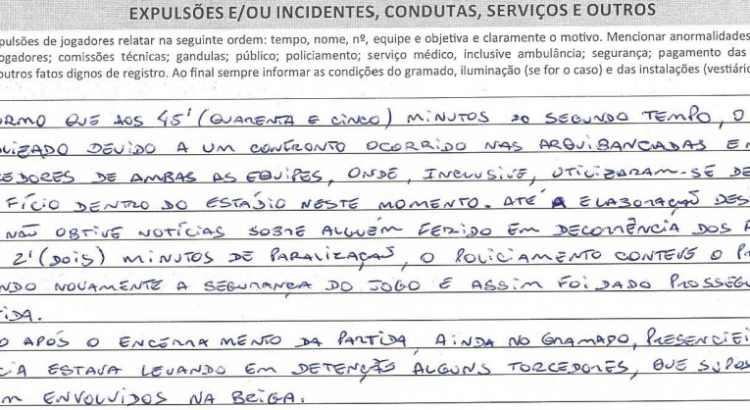 EXPULSÕES E/OU INCIDENTES, CONDUTAS, SERVIÇOS E OUTROS
pulsões de jogadores relatar na seguinte ordem: tempo, nome, nº, equipe e objetiva e claramente o motivo. Mencionar anormalidades
ogadores; comissões técnicas; gandulas; público; policiamento; serviço médico, inclusive ambulância; segurança; pagamento das
outros fatos dignos de registro. Ao final sempre informar as condições do gramado, iluminação (se for o caso) e das instalações (vestiário
ORMO QUE AOS 45' (QUARENTA E CINCO) MINUTOS DO SEGUNDO TEMPO, O
LIZADO DEVIDO A UM CONFRONTO OCORRIDO NAS ARQUIBANCADAS EN
CEDORES DE AMBAS AS EQUIPES, ONDE, INCLUSIVE, UTILIZARAM-SE DE
FÍCIO DENTRO DO ESTÁDIO NESTE MOMENTO. ATÉ A ELABORAÇÃO DES
NÃO OBTIVE NOTÍCIAS SOBRE ALGUÉM FERIDO EM DECORRÊNCIA DOS F
2' (DOIS) MINUTOS DE PARALIZAÇÃO, O POLICIAMENTO CONTEVE O P
NDO NOVAMENTE A SEGURANÇA DO JOGO E ASSIM FOI DADO PROSSEGU
TIDA.
O APÓS O ENCERRAMENTO DA PARTIDA, AINDA NO GRAMADO, PRESENCIEI
CIA ESTAVA LEVANDO EM DETENÇÃO ALGUNS TORCEDORES, QUE SUPOS
M ENVOLVIDOS NA BRIGA.